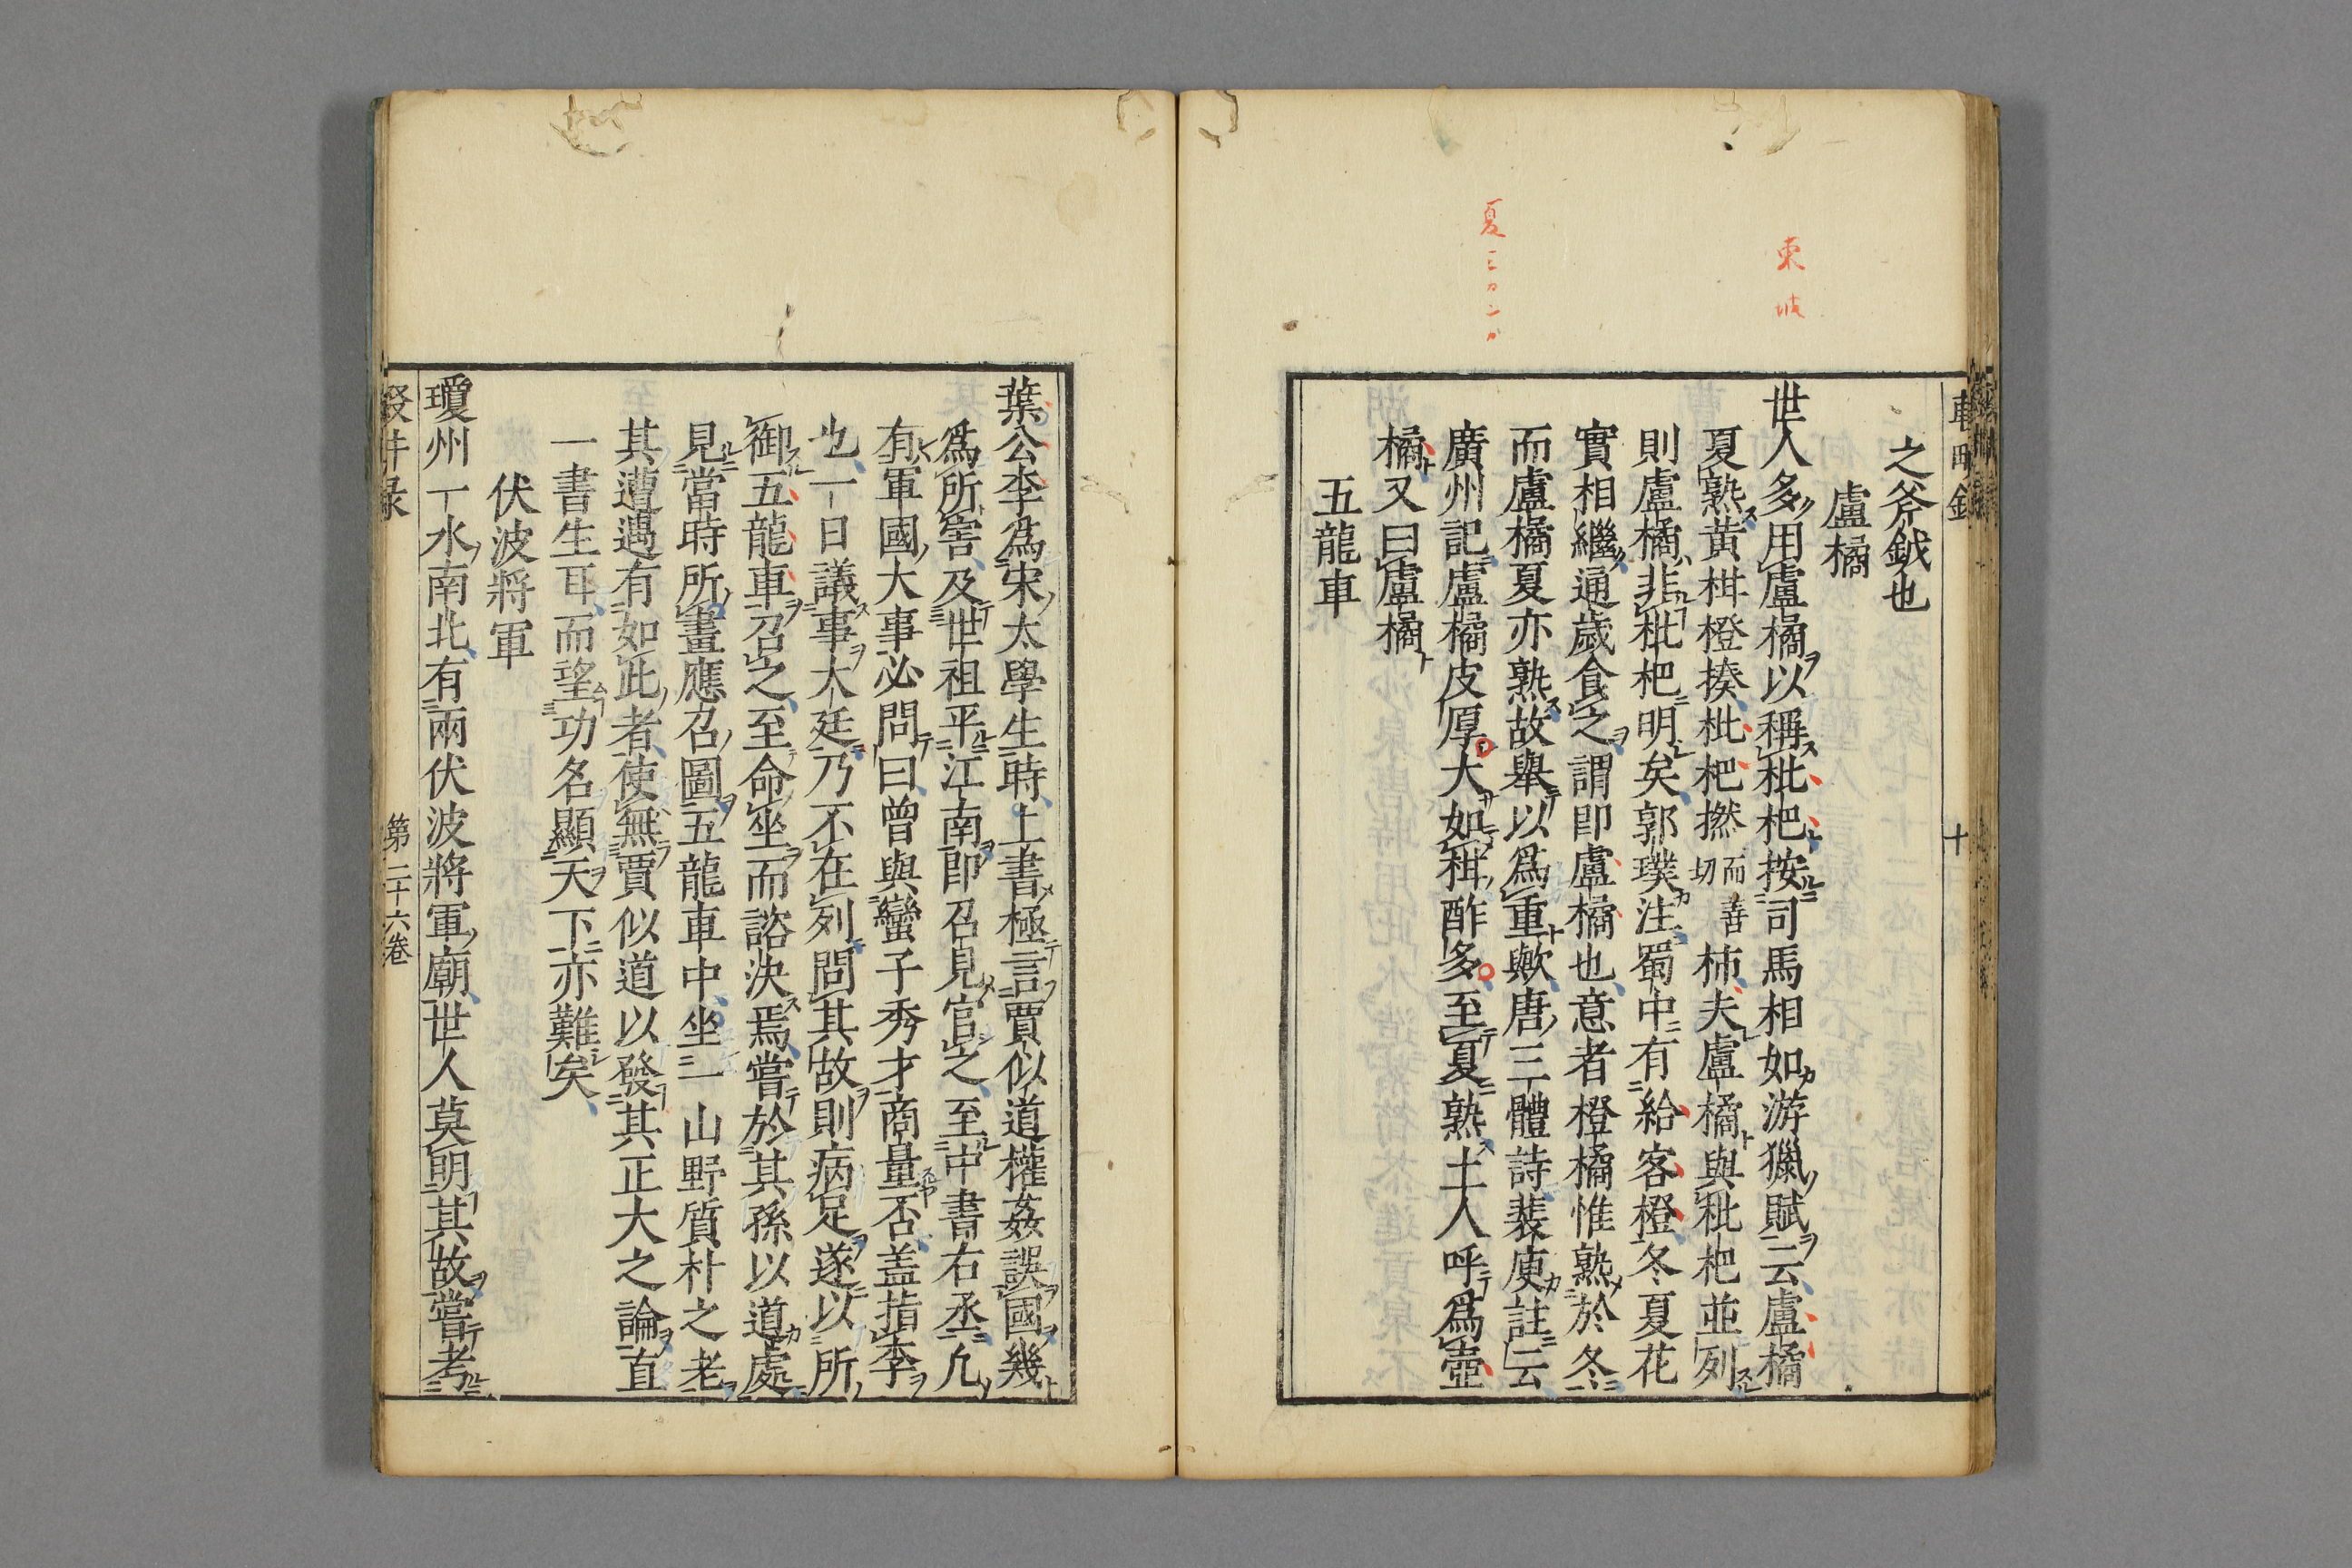 東坡
夏ミカンカ
之斧鉞也
盧橘
世人多用盧橘以稱枇杷按司馬相如游獵賦云盧橘
夏熟黃柑橙揍枇杷撚而善切柿夫盧橘與枇杷並列
則盧橘非枇杷明矣郭璞注蜀中有給客橙冬夏花
實相繼通歲食之謂即盧橘也意者橙橘惟熟於冬
而盧橘夏亦熟故舉以為重歟唐三體詩裴庾註云
廣州記盧橘皮厚大如柑酢多至夏熟土人呼為壺
橘又曰盧橘
五龍車
十
葉公李為宋太學生時上書極言賈似道權姦誤國幾
為所害及世祖平江南即召見官之至中書右丞凢
有軍國大事必問曰曾與蠻子秀才商量否盖指李
也一日議事大廷乃不在列問其故則病足遂以所
御五龍車召之至命坐而諮決焉嘗於其孫以道處
見當時所畫應召圖五龍車中坐一山野質朴之老
其遭遇有如此者使無賈似道以發其正大之論直
一書生耳而望功名顯天下亦難矣
伏波將軍
瓊州一水南北有兩伏波將軍廟世人莫明其故嘗考
第二十六卷